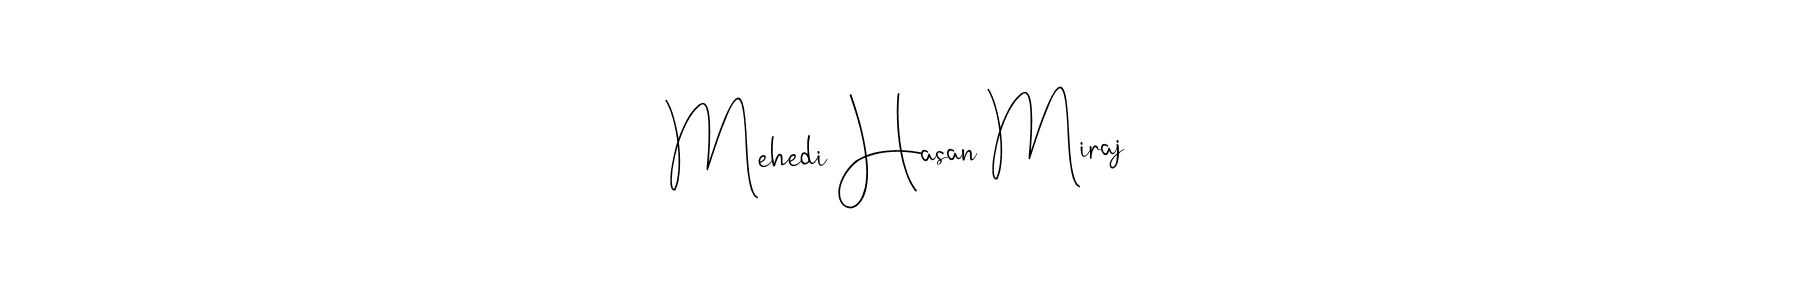 Mehedi Hasan Miraj